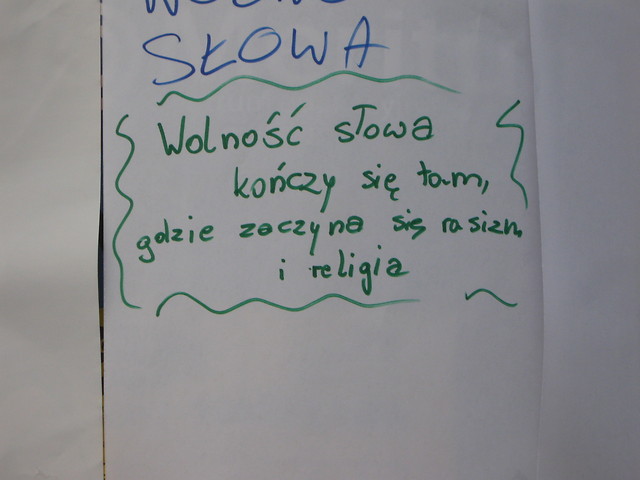 SŁOWA
Wolność słowa
kończy się tam,
gdzie zaczyna się rasizm
i religia